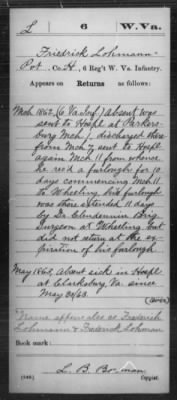 L 6 W. Va.
Fredrick Lohmann
Pvt, Co. H, 6 Reg't W. Va. Infantry.
Appears on Returns as follows:
Mch 1862, (6 Va Inf.) absent was
sent to Hospt at Parkers-
burg Mch 1, discharged there
from Mch 7, sent to Hospt
again Mch 11 from whence
he recd a furlough for 10
days commencing Mch 11
to Wheeling his furlough
was there extended 11 days
by Dr. Clendennin Brig.
Surgeon at Wheeling but
did not return at the ex-
piration of his furlough.
May 1863, absent sick in Hospt
at Clarksburg Va. since
May 30/63.
(over)
Name appears also as Frederick
Lohmann & Frederick Lohman
Book mark:
L. B. Bowman
(546) Copyist.